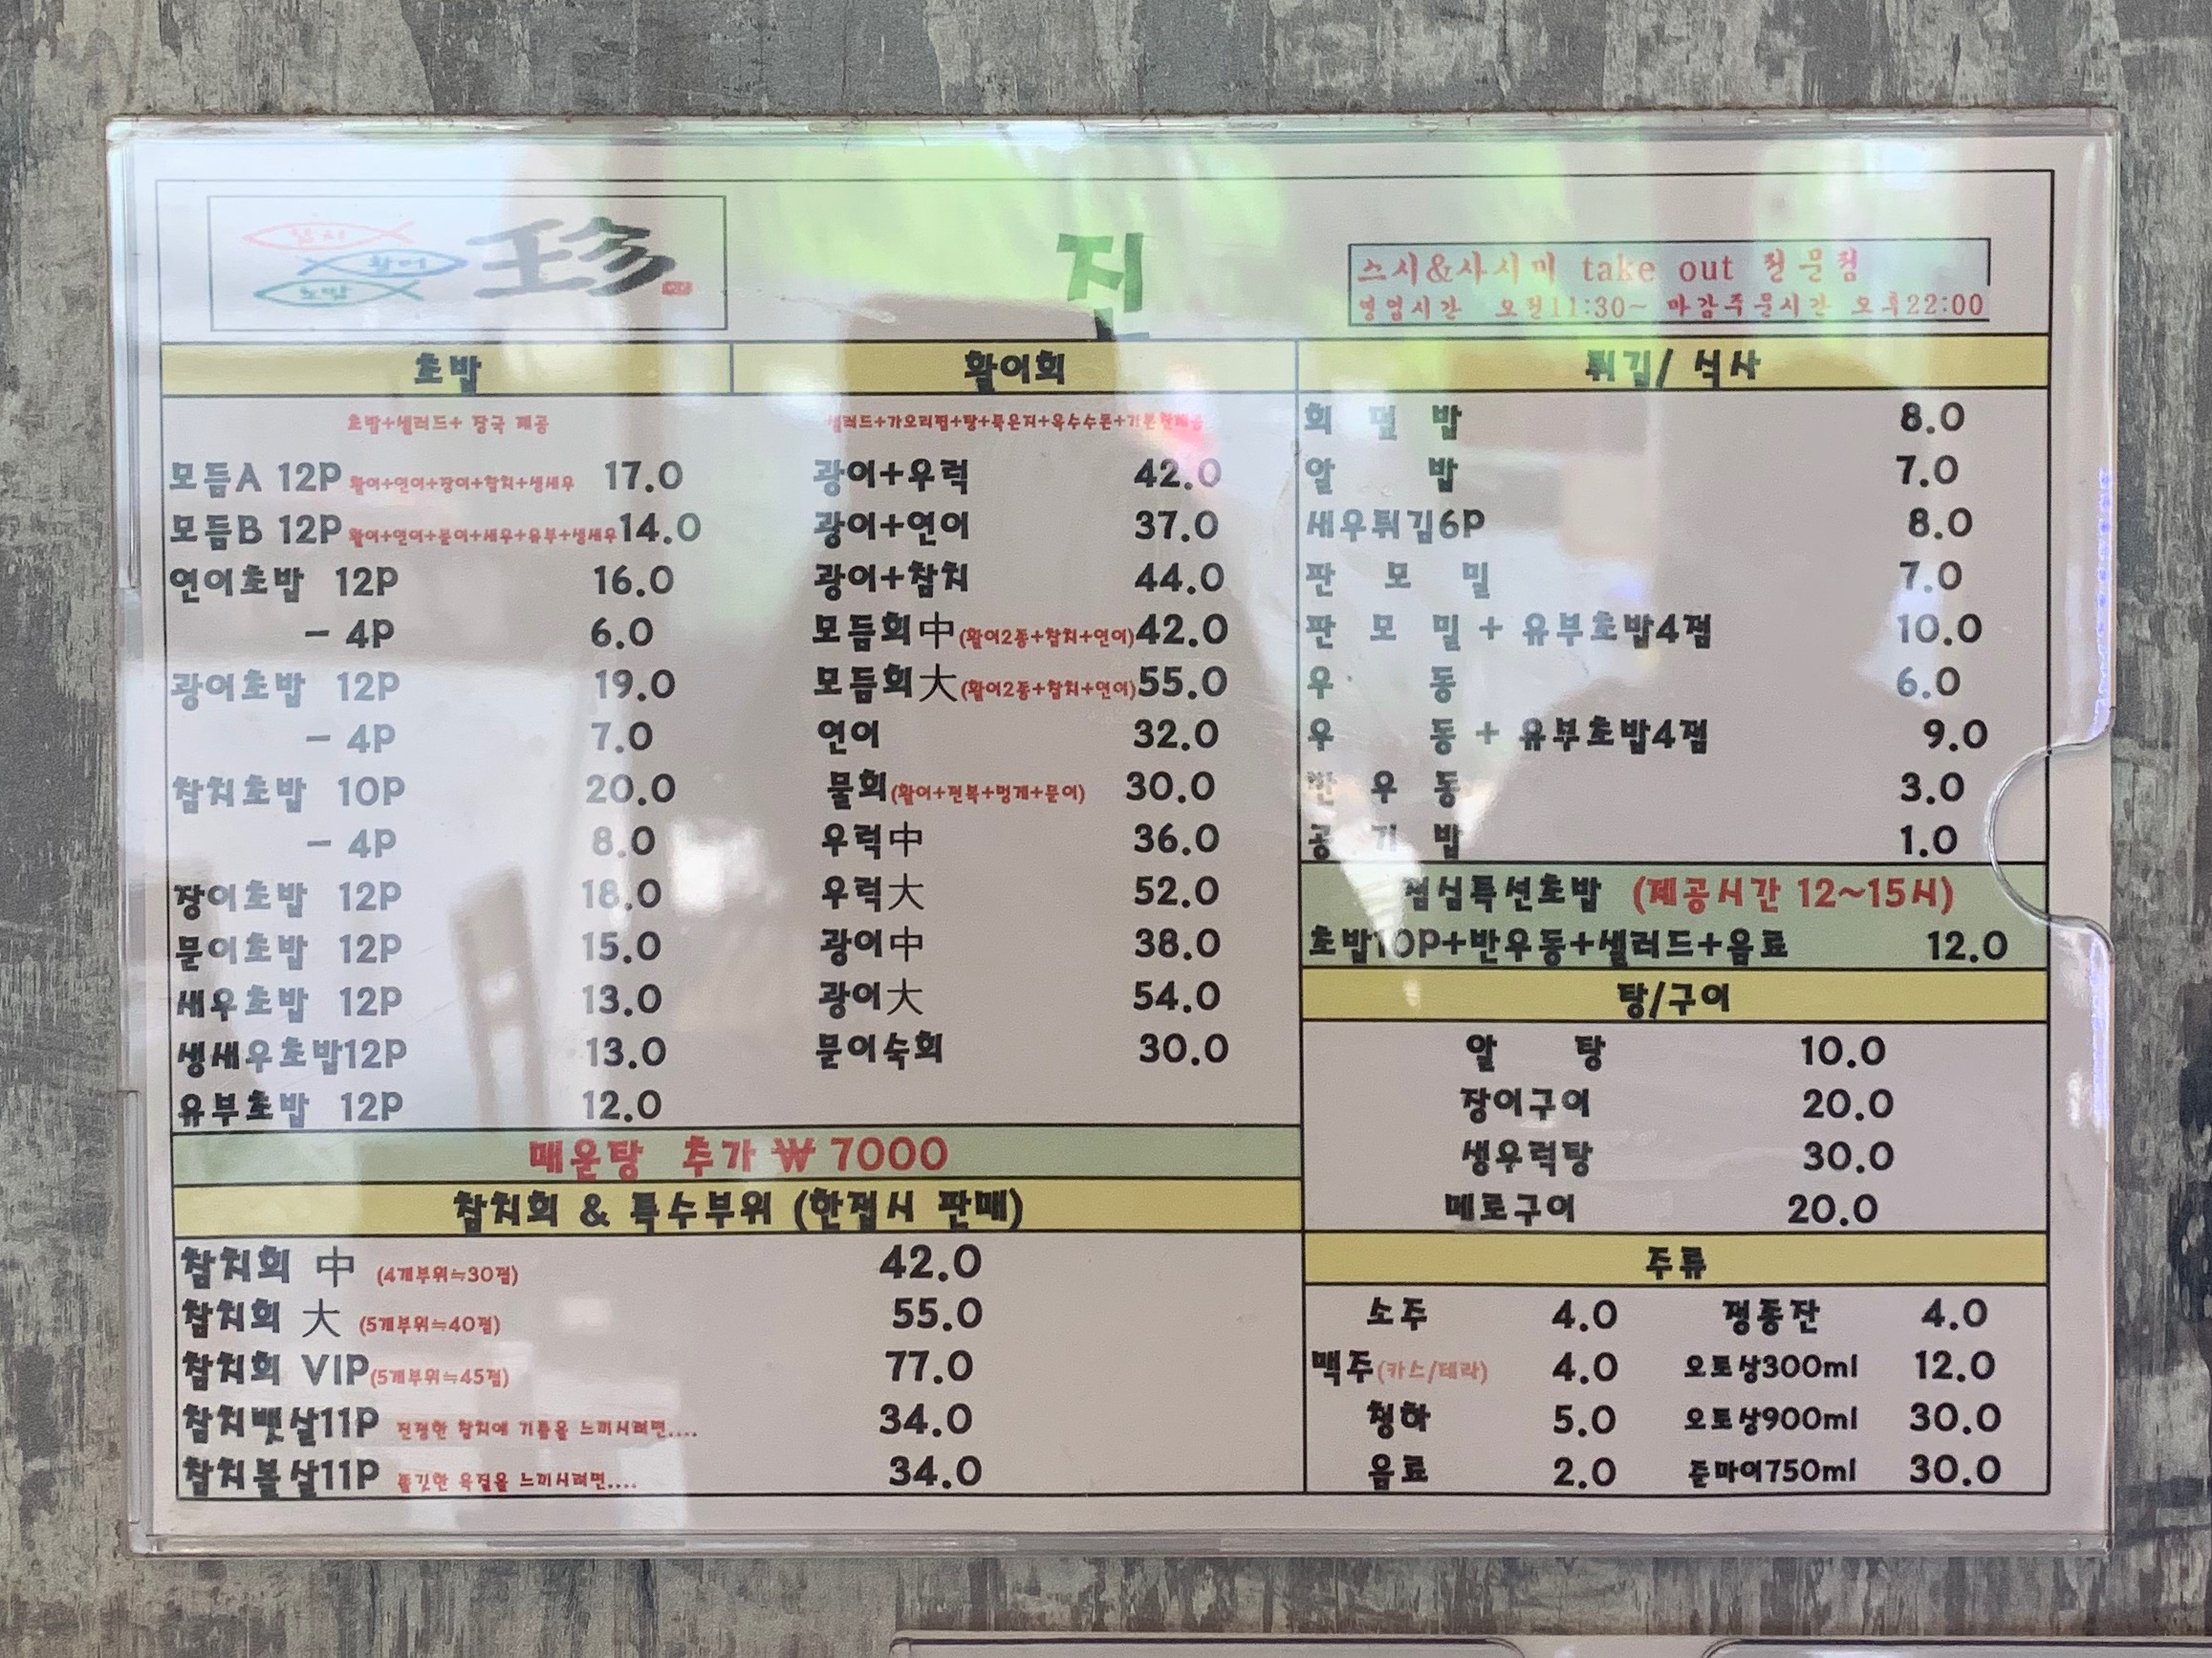 참치
활어
초밥
珍
진
스시&사시미 take out 전문점
영업시간 오전11:30~ 마감주문시간 오후22:00
초밥
초밥+샐러드+ 장국 제공
모듬A 12P 활어+연어+장어+참치+생새우 17.0
모듬B 12P 활어+연어+문어+새우+유부+생새우 14.0
연어초밥 12P 16.0
- 4P 6.0
광어초밥 12P 19.0
- 4P 7.0
참치초밥 10P 20.0
- 4P 8.0
장어초밥 12P 18.0
문어초밥 12P 15.0
새우초밥 12P 13.0
생새우초밥12P 13.0
유부초밥 12P 12.0
활어회
샐러드+가오리찜+탕+묵은지+옥수수콘+기본찬제공
광어+우럭 42.0
광어+연어 37.0
광어+참치 44.0
모듬회中(활어2종+참치+연어) 42.0
모듬회大(활어2종+참치+연어) 55.0
연어 32.0
물회(활어+전복+멍게+문어) 30.0
우럭中 36.0
우럭大 52.0
광어中 38.0
광어大 54.0
문어숙회 30.0
매운탕 추가 ₩ 7000
참치회 & 특수부위 (한접시 판매)
참치회 中 (4개부위≒30점) 42.0
참치회 大 (5개부위≒40점) 55.0
참치회 VIP(5개부위≒45점) 77.0
참치뱃살11P 진정한 참치에 기름을 느끼시려면.... 34.0
참치볼살11P 쫄깃한 육질을 느끼시려면.... 34.0
튀김/ 식사
회 덮 밥 8.0
알 밥 7.0
새우튀김6P 8.0
판 모 밀 7.0
판 모 밀 + 유부초밥4점 10.0
우 동 6.0
우 동 + 유부초밥4점 9.0
반 우 동 3.0
공 기 밥 1.0
점심특선초밥 (제공시간 12~15시)
초밥10P+반우동+샐러드+음료 12.0
탕/구이
알 탕 10.0
장어구이 20.0
생우럭탕 30.0
메로구이 20.0
주류
소주 4.0 정종잔 4.0
맥주(카스/테라) 4.0 오토상300ml 12.0
청하 5.0 오토상900ml 30.0
음료 2.0 준마이750ml 30.0